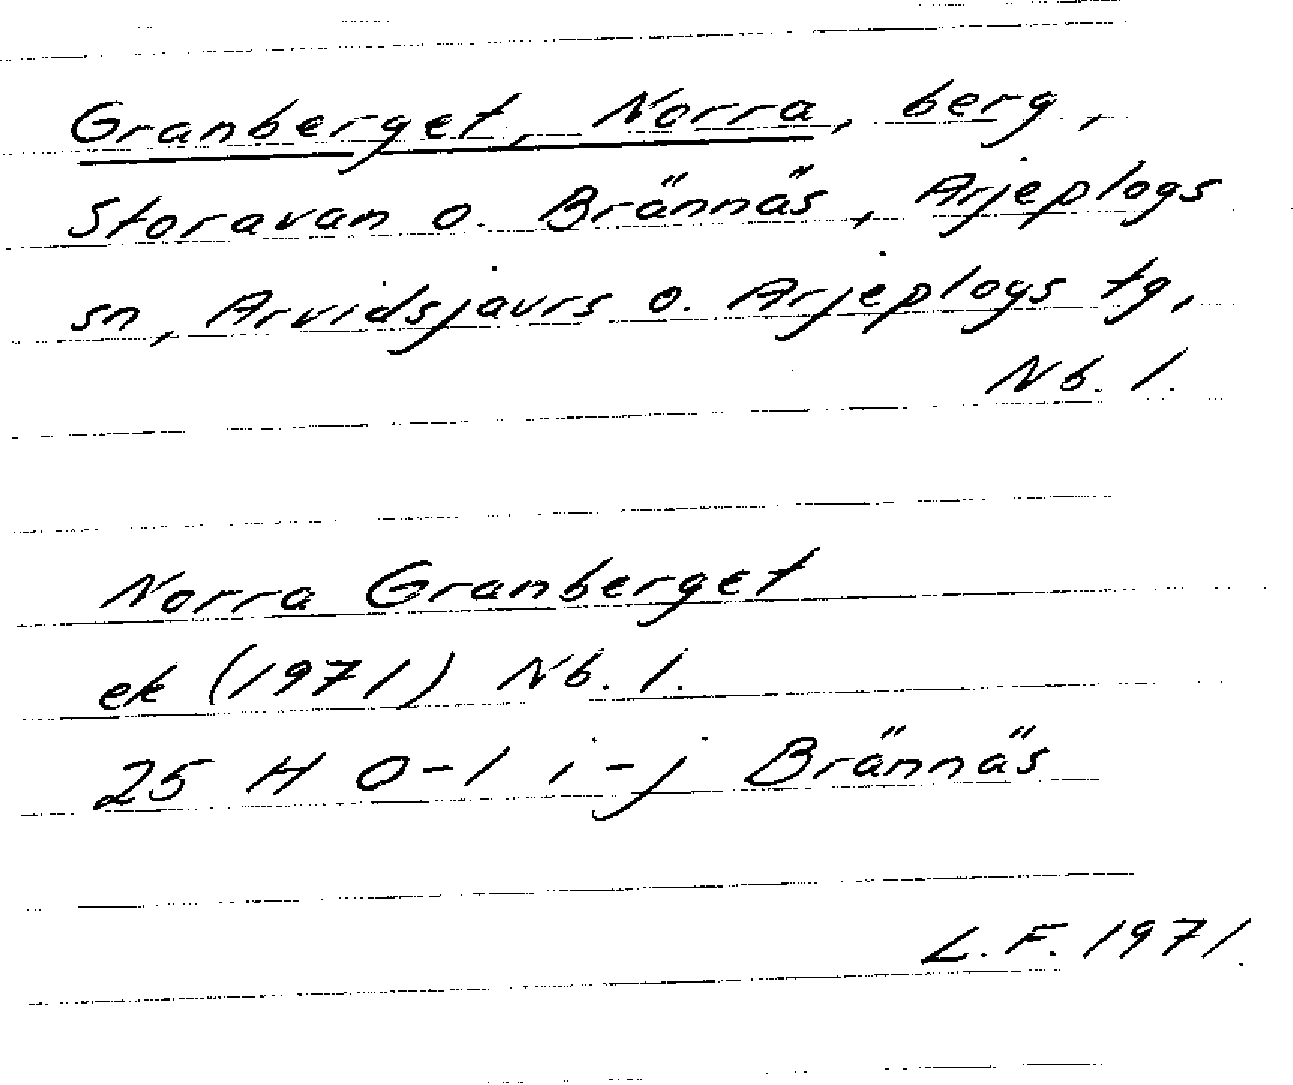 Granberget, Norra, berg,
Storavan o. Brännäs, Arjeplogs
sn, Arvidsjaurs o. Arjeplogs tg,
Nb. l.
Norra Granberget
ek (1971) Nb. l.
25 H 0-1 i-j Brännäs
L.F. 1971.